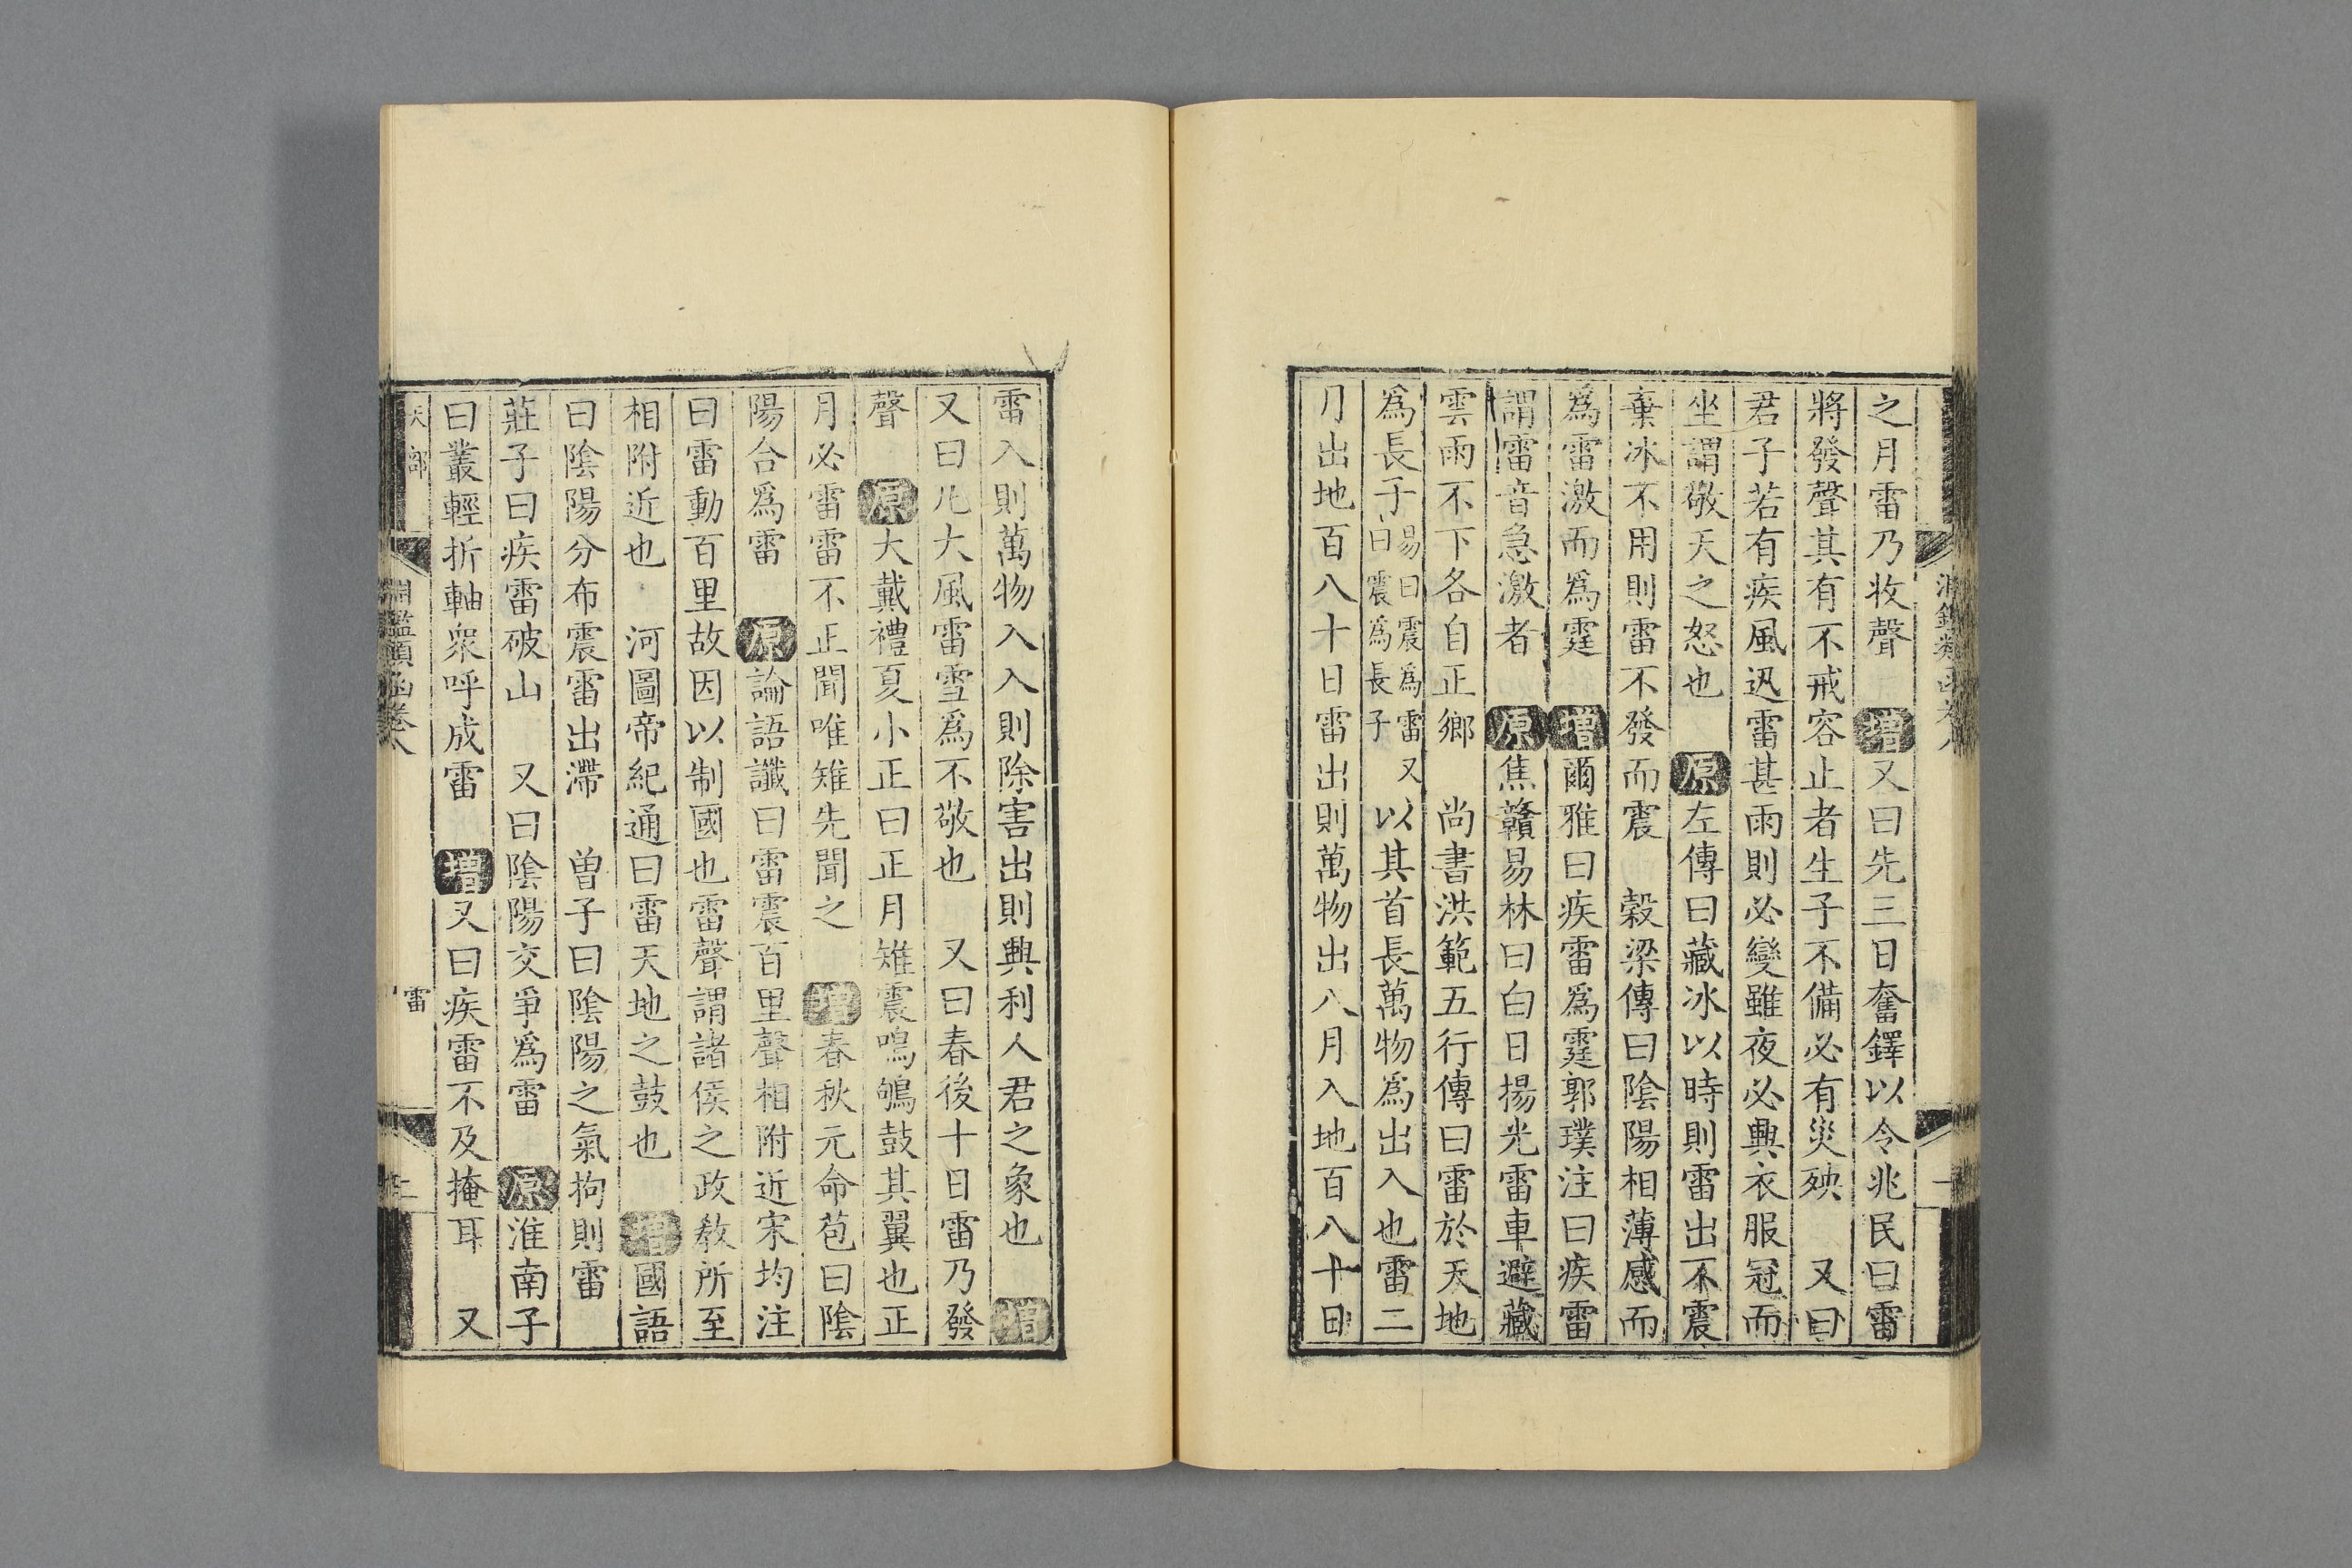 之月雷乃收聲 增又曰先三日奮鐸以令兆民曰雷
將發聲其有不戒容止者生子不備必有災殃 又曰
君子若有疾風迅雷甚雨則必變雖夜必興衣服冠而
坐謂敬天之怒也 原左傳曰藏冰以時則雷出不震
棄冰不用則雷不發而震 穀梁傳曰陰陽相薄感而
為雷激而為霆 增爾雅曰疾雷為霆郭璞注曰疾雷
謂雷音急激者 原焦贛易林曰白日揚光雷車避藏
雲雨不下各自正鄉 尚書洪範五行傳曰雷於天地
為長子易曰震為雷又曰震為長子以其首長萬物為出入也雷二
月出地百八十日雷出則萬物出八月入地百八十日
雷入則萬物入入則除害出則興利人君之象也 增
又曰凡大風雷雪為不敬也 又曰春後十日雷乃發
聲 原大戴禮夏小正曰正月雉震鳴鴝鼓其翼也正
月必雷雷不正聞唯雉先聞之 增春秋元命苞曰陰
陽合為雷 原論語讖曰雷震百里聲相附近宋均注
曰雷動百里故因以制國也雷聲謂諸侯之政教所至
相附近也 河圖帝紀通曰雷天地之鼓也 增國語
曰陰陽分布震雷出滯 曾子曰陰陽之氣拘則雷
莊子曰疾雷破山 又曰陰陽交爭為雷 原淮南子
曰叢輕折軸衆呼成雷 增又曰疾雷不及掩耳 又
天部 淵鑑類函卷八 雷 二